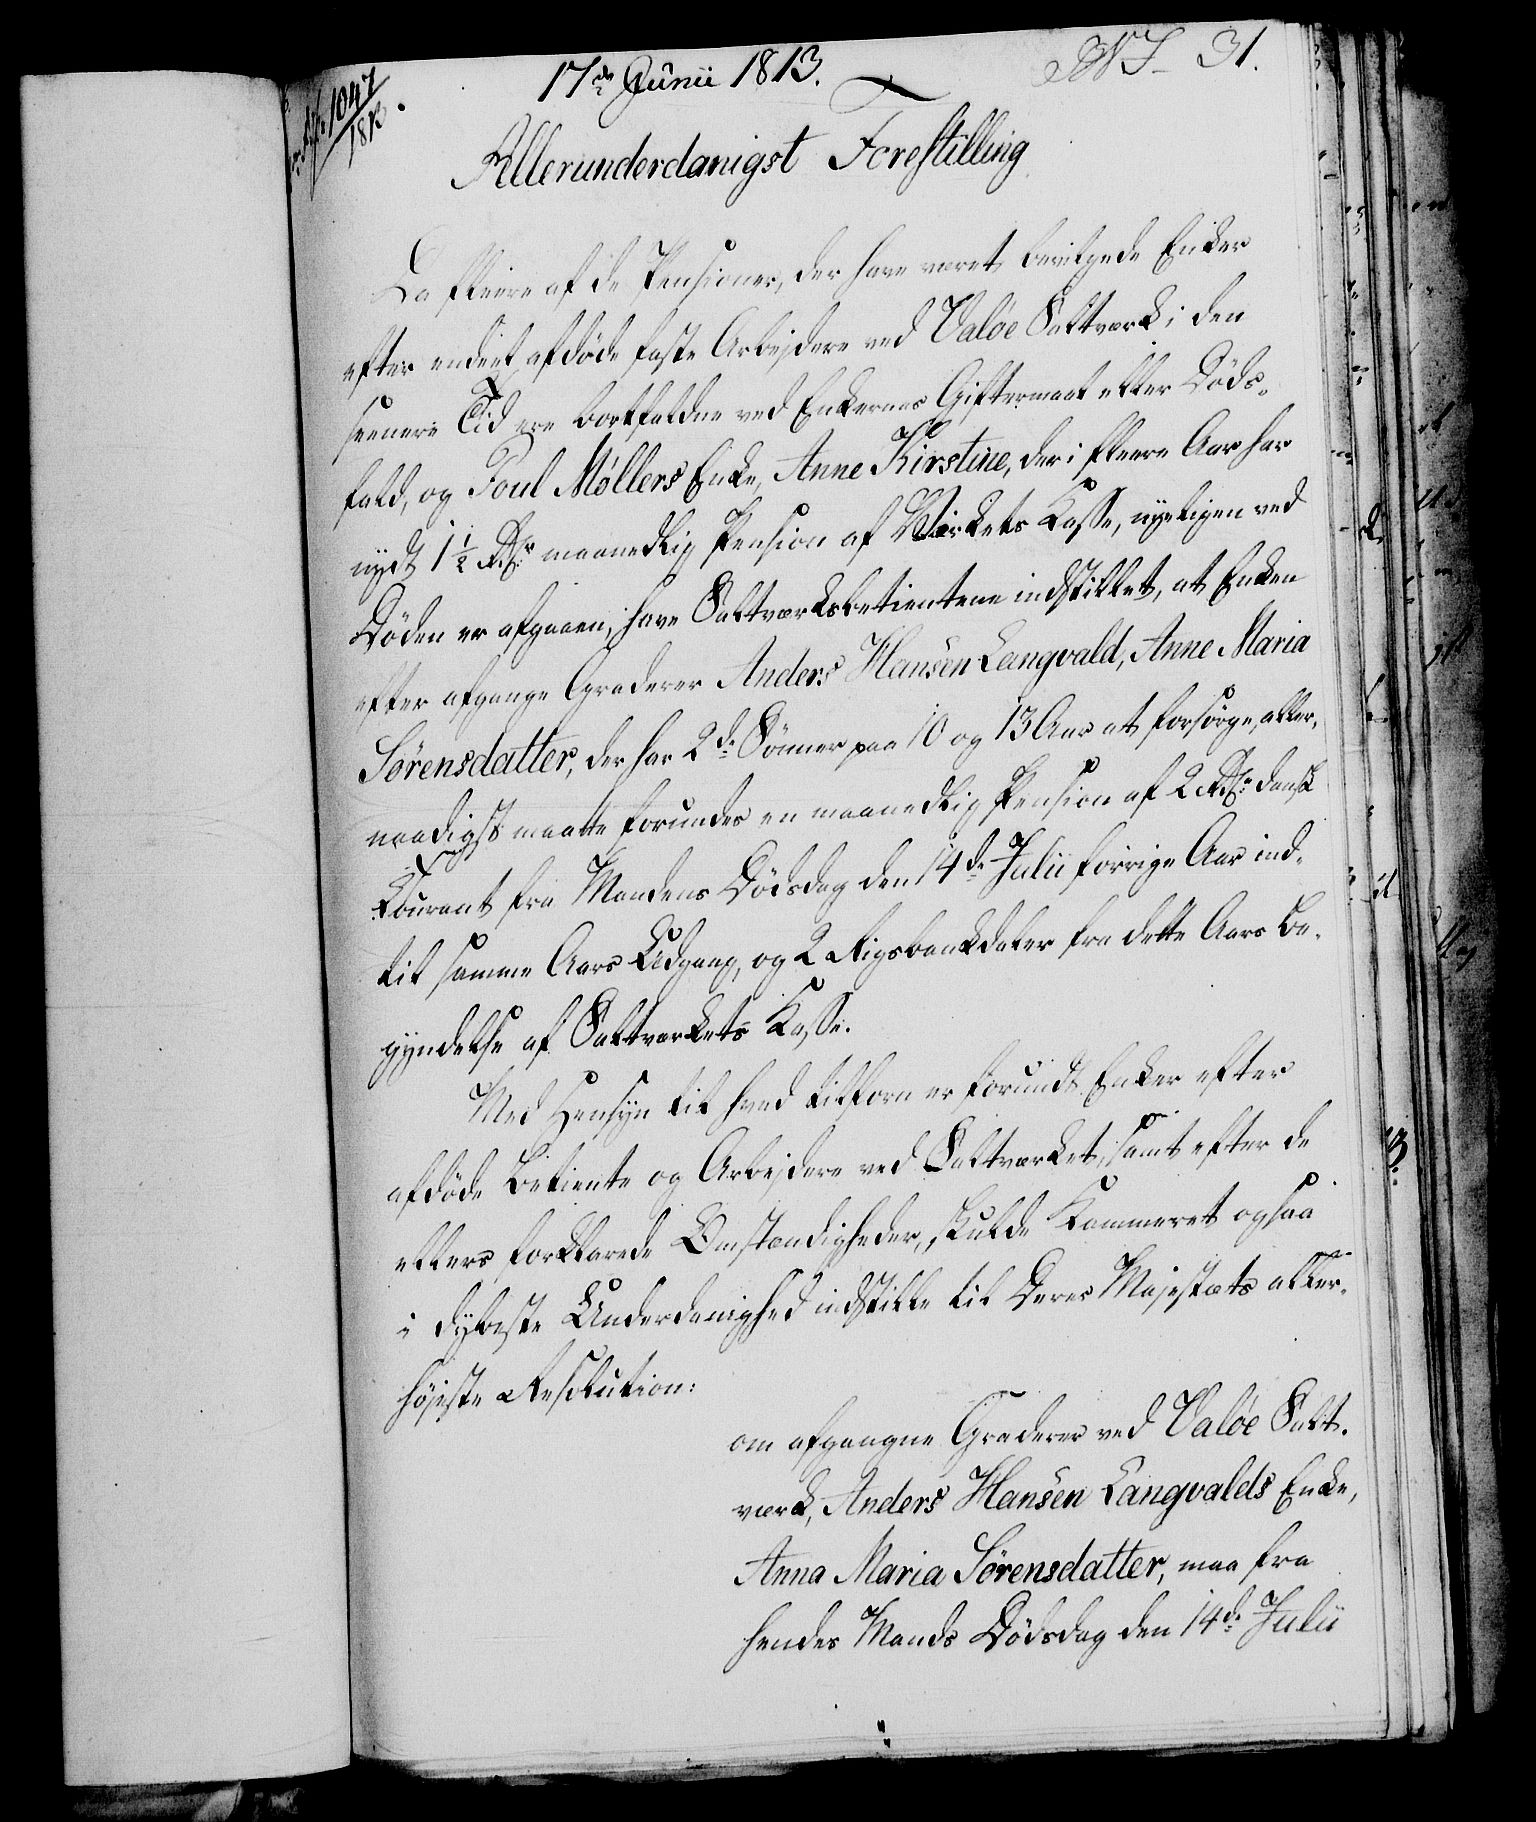 17de Junii 1813.
31.
1047
1812.
Allerunderdanigst Forestilling
Da fleere af de Pensioner, der have været bevilgede Enker
efter endeel afdøde faste Arbejdere ved Valøe Saltværk i den
seenere Tid ere bortfaldne ved Enkernes Giftermaal eller Døds-
fald, og Poul Møllers Enke, Anne Kirstine, der i fleere Aar har
nydt 1½ Rdlr maanedlig Pension af Værkets Kasse, nyeligen ved
Døden er afgaaen, have Saltværksbetientene indstillet, at Enken
efter afgangne Graderer Anders Hansen Langvald, Anne Maria
Sørensdatter, der har 2de Sønner paa 10 og 13 Aar at forsørge, aller-
naadigst maatte forundes en maanedlig Pension af 2 Rdlr dansk
Kourant fra Mandens Dødsdag den 14de Julii forrige Aar ind-
til samme Aars Udgang, og 2 Rigsbankdaler fra dette Aars Be-
gyndelse af Saltværkets Kasse.
Med Hensyn til hvad tilforn er forundt Enker efter
afdøde Betiente og Arbejdere ved Saltværket, samt efter de
ellers forklarede Omstændigheder, skulde Kammeret ogsaa
i dybeste Underdanighed indstille til Deres Majestæts aller-
højeste Resolution:
om afgangne Graderer ved Valøe Salt-
værk, Anders Hansen Langvalds Enke,
Anna Maria Sørensdatter, maa fra
hendes Mands Dødsdag den 14de Julii